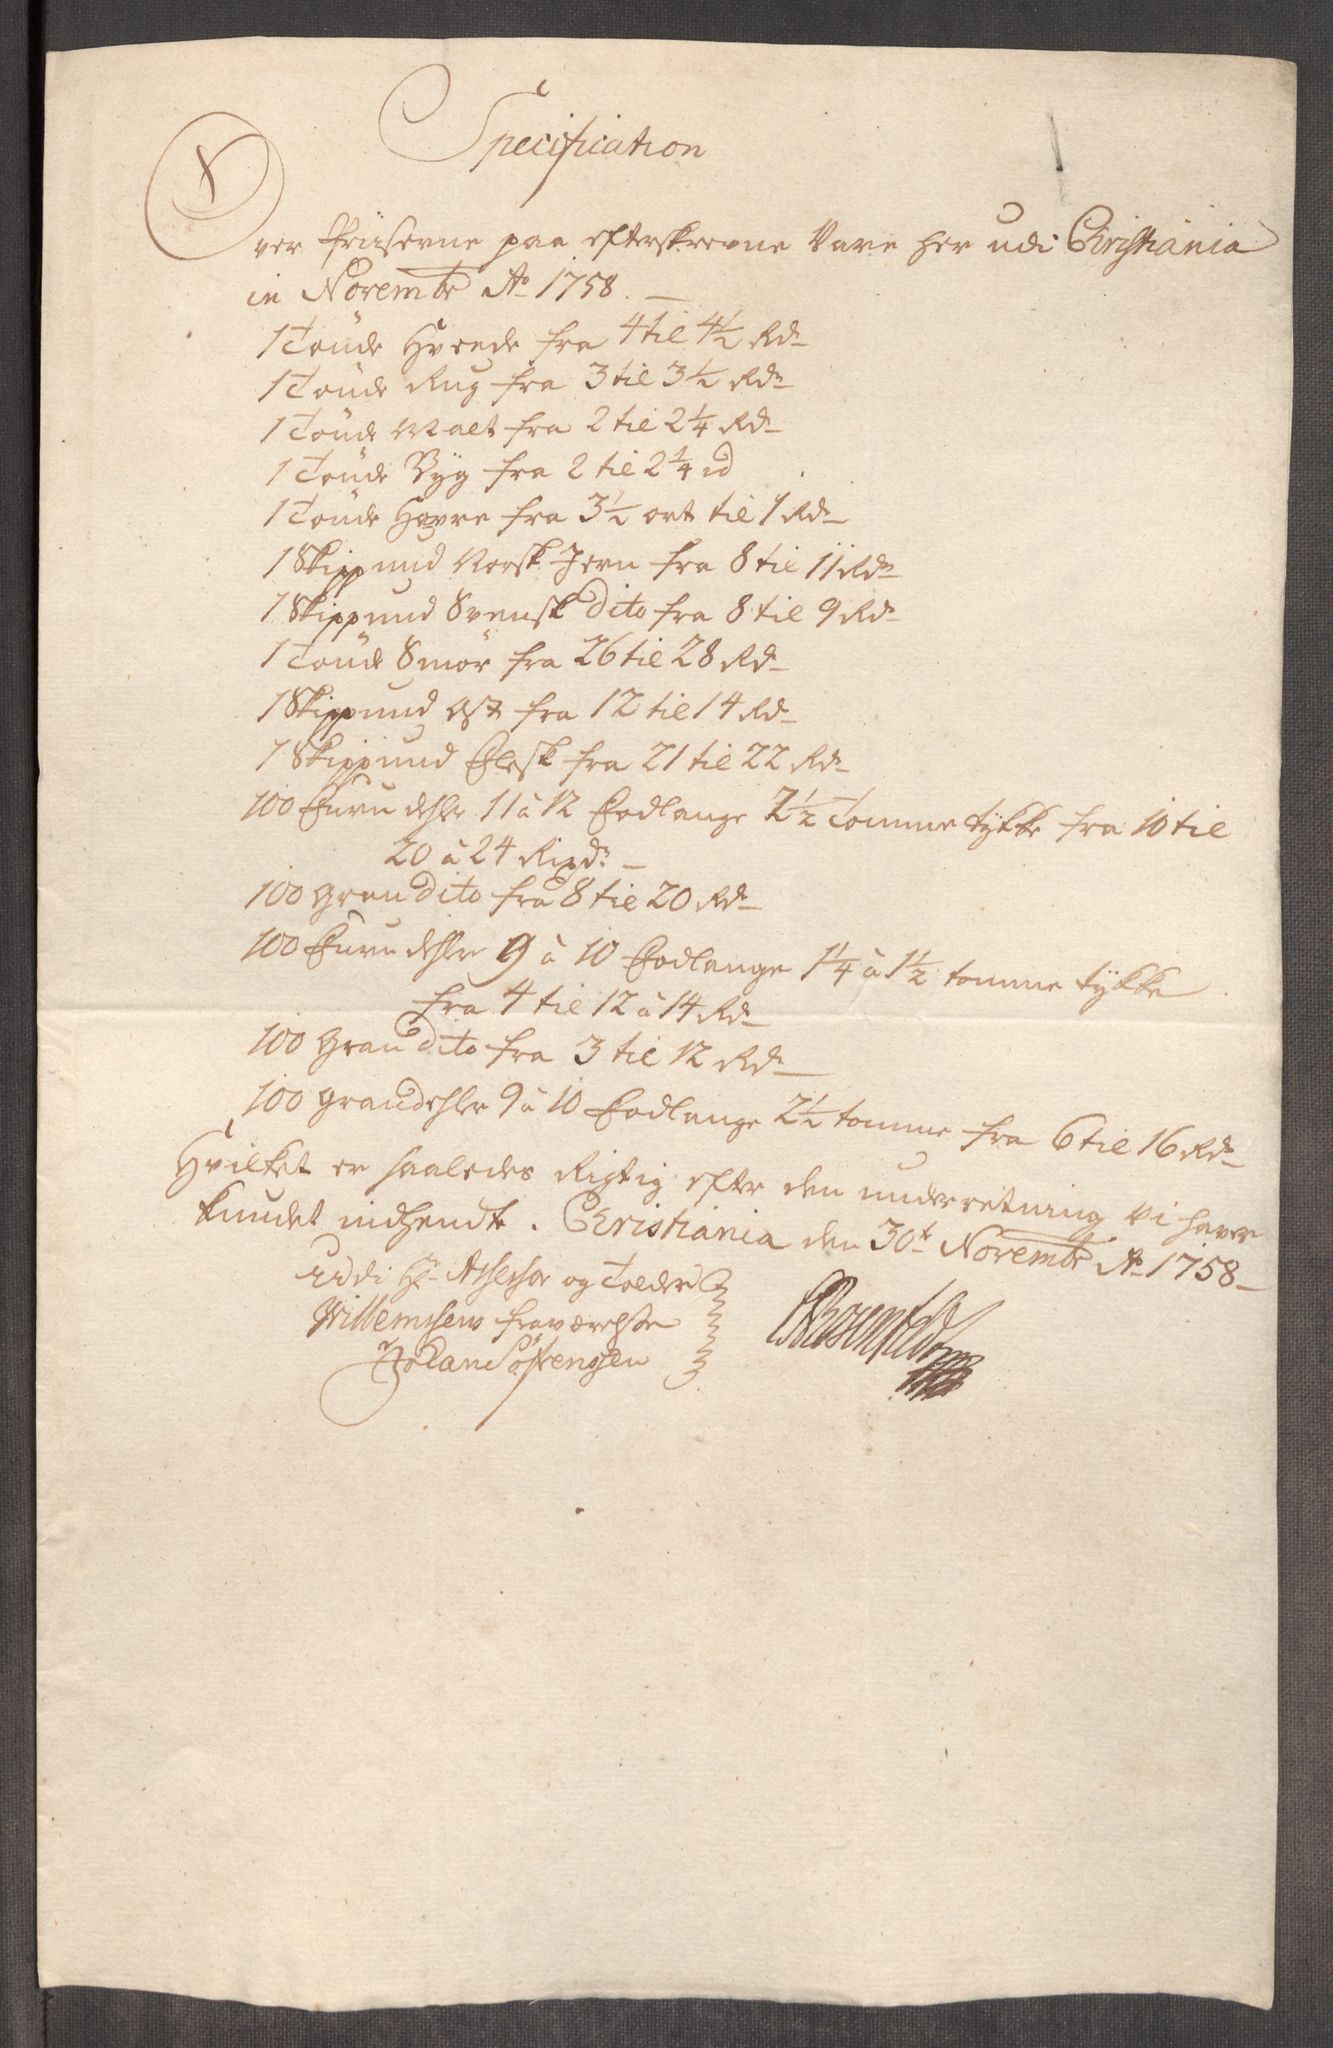 Specification
Over Priiserne paa efterskrevne Vare her udi Christiania
in Novembr Ao 1758.
1 Tønde Hveede fra 4 til 4½ Rdr
1 Tønde Rug fra 3 til 3½ Rdr
1 Tønde Malt fra 2 til 2¼ Rdr
1 Tønde Byg fra 2 til 2¼ rd
1 Tønde Havre fra 3½ ort til 1 Rdr
1 Skippund Norsk Jern fra 8 til 11 Rdr
1 Skippund Svensk dito fra 8 til 9 Rdr
1 Tønde Smör fra 26 til 28 Rdr
1 Skippund Ost fra 12 til 14 Rdr
1 Skippund Flesk fra 21 til 22 Rdr
100 Furu dehler 11 à 12 Fodlange 2½ Tomme tykke fra 10 til
20 à 24 Rixdr
100 Gran dito fra 8 til 20 Rdr
100 Furu dehler 9 à 10 Fodlange 1¼ à 1½ tomme tykke
fra 4 til 12 à 14 Rdr
100 Gran dito fra 3 til 12 Rdr
100 Grandehler 9 à 10 Fodlange 2½ tomme fra 6 til 16 Rdr
Hvilket er saaledes Rigtig efter den underretning vi haver
kundet indhendte. Christiania den 30te Novembr Ao 1758
Udi Hr Assessor og Tolder
Willemsens fraværelse
Johan Sørensen